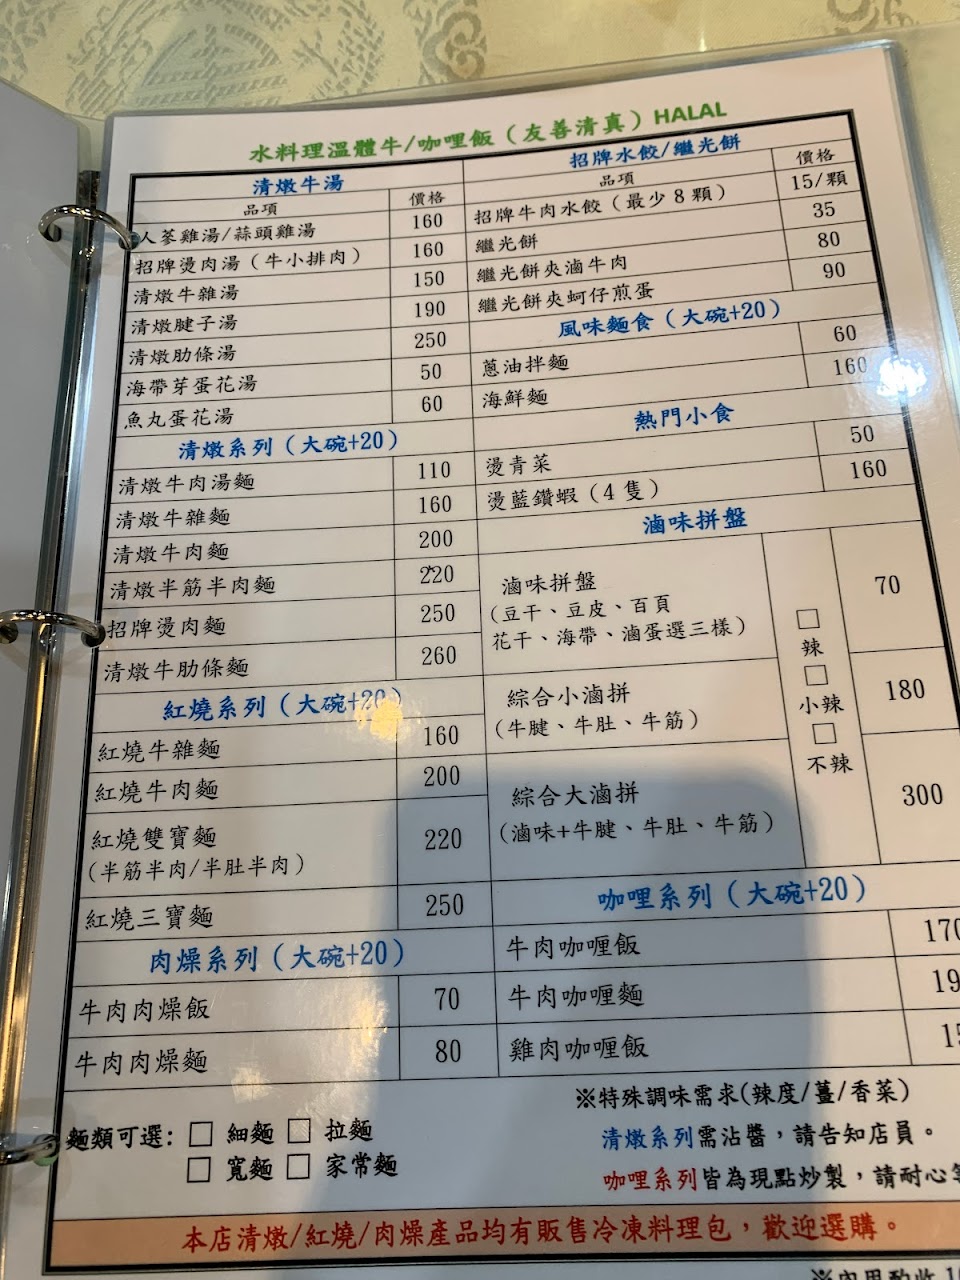 水料理溫體牛/咖哩飯（友善清真）HALAL
清燉牛湯
品項 價格
人蔘雞湯/蒜頭雞湯 160
招牌燙肉湯（牛小排肉） 160
清燉牛雜湯 150
清燉腱子湯 190
清燉肋條湯 250
海帶芽蛋花湯 50
魚丸蛋花湯 60
清燉系列（大碗+20）
清燉牛肉湯麵 110
清燉牛雜麵 160
清燉牛肉麵 200
清燉半筋半肉麵 220
招牌燙肉麵 250
清燉牛肋條麵 260
紅燒系列（大碗+20）
紅燒牛雜麵 160
紅燒牛肉麵 200
紅燒雙寶麵 220
（半筋半肉/半肚半肉）
紅燒三寶麵 250
肉燥系列（大碗+20）
牛肉肉燥飯 70
牛肉肉燥麵 80
招牌水餃/繼光餅
品項 價格
招牌牛肉水餃（最少8顆） 15/顆
繼光餅 35
繼光餅夾滷牛肉 80
繼光餅夾蚵仔煎蛋 90
風味麵食（大碗+20）
蔥油拌麵 60
海鮮麵 160
熱門小食
燙青菜 50
燙藍鑽蝦（4隻） 160
滷味拼盤
滷味拼盤 70
（豆干、豆皮、百頁
花干、海帶、滷蛋選三樣）
綜合小滷拼 180
（牛腱、牛肚、牛筋）
綜合大滷拼 300
（滷味+牛腱、牛肚、牛筋）
□
辣
□
小辣
□
不辣
咖哩系列（大碗+20）
牛肉咖喱飯 170
牛肉咖喱麵 19
雞肉咖喱飯
麵類可選: □ 細麵 □ 拉麵
□ 寬麵 □ 家常麵
※特殊調味需求(辣度/薑/香菜)
清燉系列需沾醬，請告知店員。
咖哩系列皆為現點炒製，請耐心
本店清燉/紅燒/肉燥產品均有販售冷凍料理包，歡迎選購。